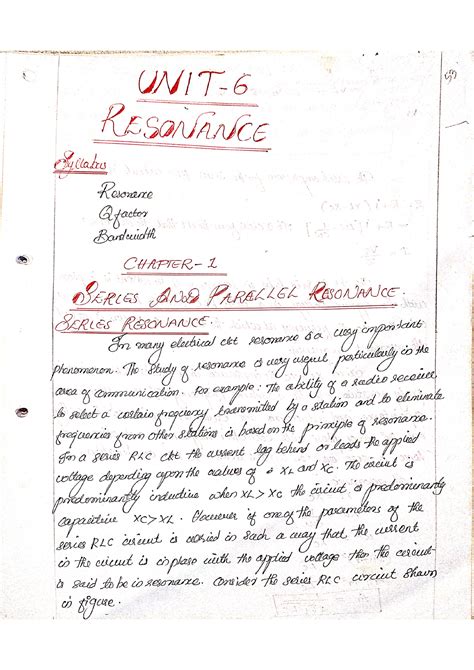 UNIT-6
RESONANCE
Syllabus
Resonance
Q factor
Bandwidth
CHAPTER-1
SERIES AND PARELLEL RESONANCE.
SERIES RESONANCE.
In many electrical ckt resonance is a very important
phenomenon. The study of resonance is very useful particularly in the
area of communication. For example: The ability of a radio receiver
to select a certain frequency transmitted by a station and to eliminate
frequencies from other stations is based on the principle of resonance.
In a series RLC ckt the current lag behind or leads the applied
voltage depending upon the values of XL and XC. The circuit is
predominantly inductive when XL > XC the circuit is predominantly
capacitive XC > XL. However if one of the parameters of the
series RLC circuit is varied in such a way that the current
in the circuit is in phase with the applied voltage then the circuit
is said to be in resonance. Consider the series RLC circuit shown
in figure.